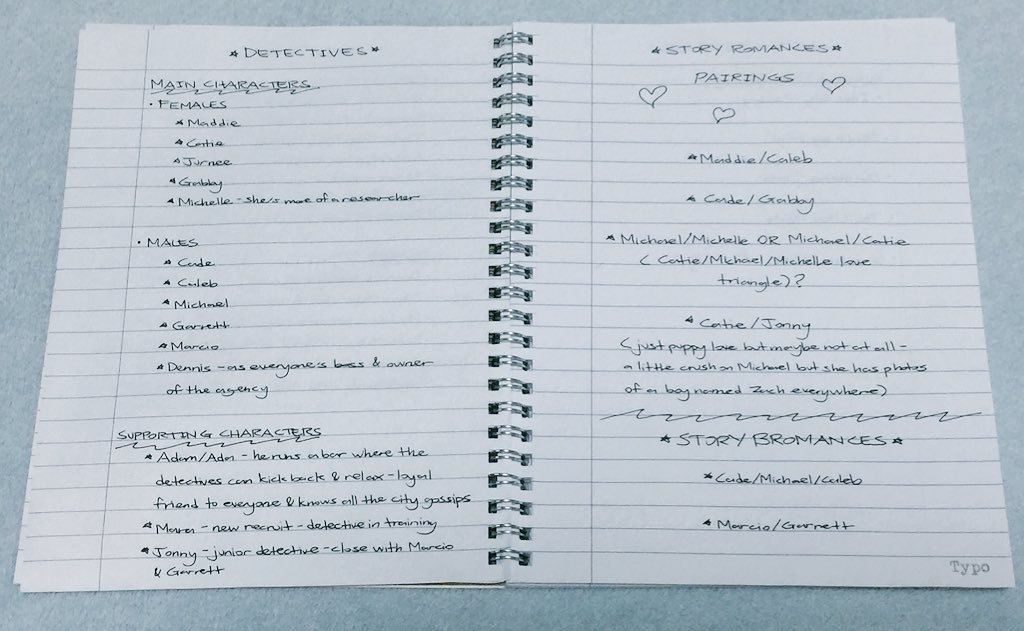 ★ DETECTIVES ★
MAIN CHARACTERS
• FEMALES
★ Maddie
★ Catie
★ Jurnee
★ Gabby
★ Michelle - she's more of a researcher
• MALES
★ Cade
★ Caleb
★ Michael
★ Garrett
★ Marcio
★ Dennis - as everyone's boss & owner
of the agency
SUPPORTING CHARACTERS
★ Adam/Adan - he runs a bar where the
detectives can kick back & relax - loyal
friend to everyone & knows all the city gossips
★ Mara - new recruit - detective in training
★ Jonny - junior detective - close with Marcio
& Garrett
★ STORY ROMANCES ★
PAIRINGS
★ Maddie/Caleb
★ Cade/Gabby
★ Michael/Michelle OR Michael/Catie
(Catie/Michael/Michelle love
triangle)?
★ Catie/Jonny
(just puppy love but maybe not at all -
a little crush on Michael but she has photos
of a boy named Zach everywhere)
★ STORY BROMANCES ★
★ Cade/Michael/Caleb
★ Marcio/Garrett
Typo